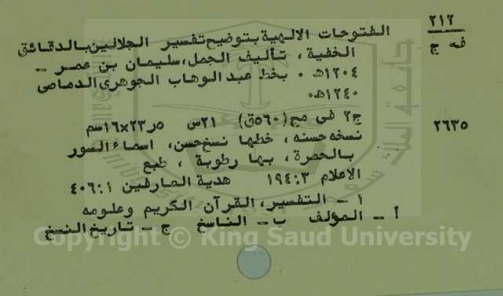 ٢١٢
ف ج
الفتوحات الالهية بتوضيح تفسير الجلالين بالدقائق
الخفية ، تأليف الجمل، سليمان بن عمر -
١٢٠٤هـ ٠ بخط عبد الوهاب الجوهرى الدماصى
١٢٤٠هـ٠
٢٦٣٥
ج٢ فى مج(٥٦٠ق) ٢١س ٢٣٫٥×١٦سم
نسخه حسنه ، خطها نسخ حسن، اسماء السور
بالحمرة، بها رطوبة ، طبع
الاعلام ٣: ١٩٤ هدية العارفين ١: ٤٠٦
١ - التفسير، القرآن الكريم وعلومه
أ - المؤلف ب - الناسخ ج - تاريخ النسخ
Copyright © King Saud University